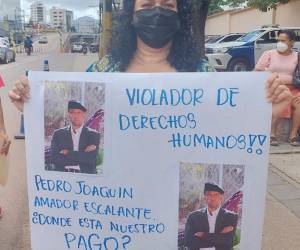 VIOLADOR DE
DERECHOS
HUMANOS!!
PEDRO JOAQUIN
AMADOR ESCALANTE,
¿DONDE ESTA NUESTRO
PAGO?